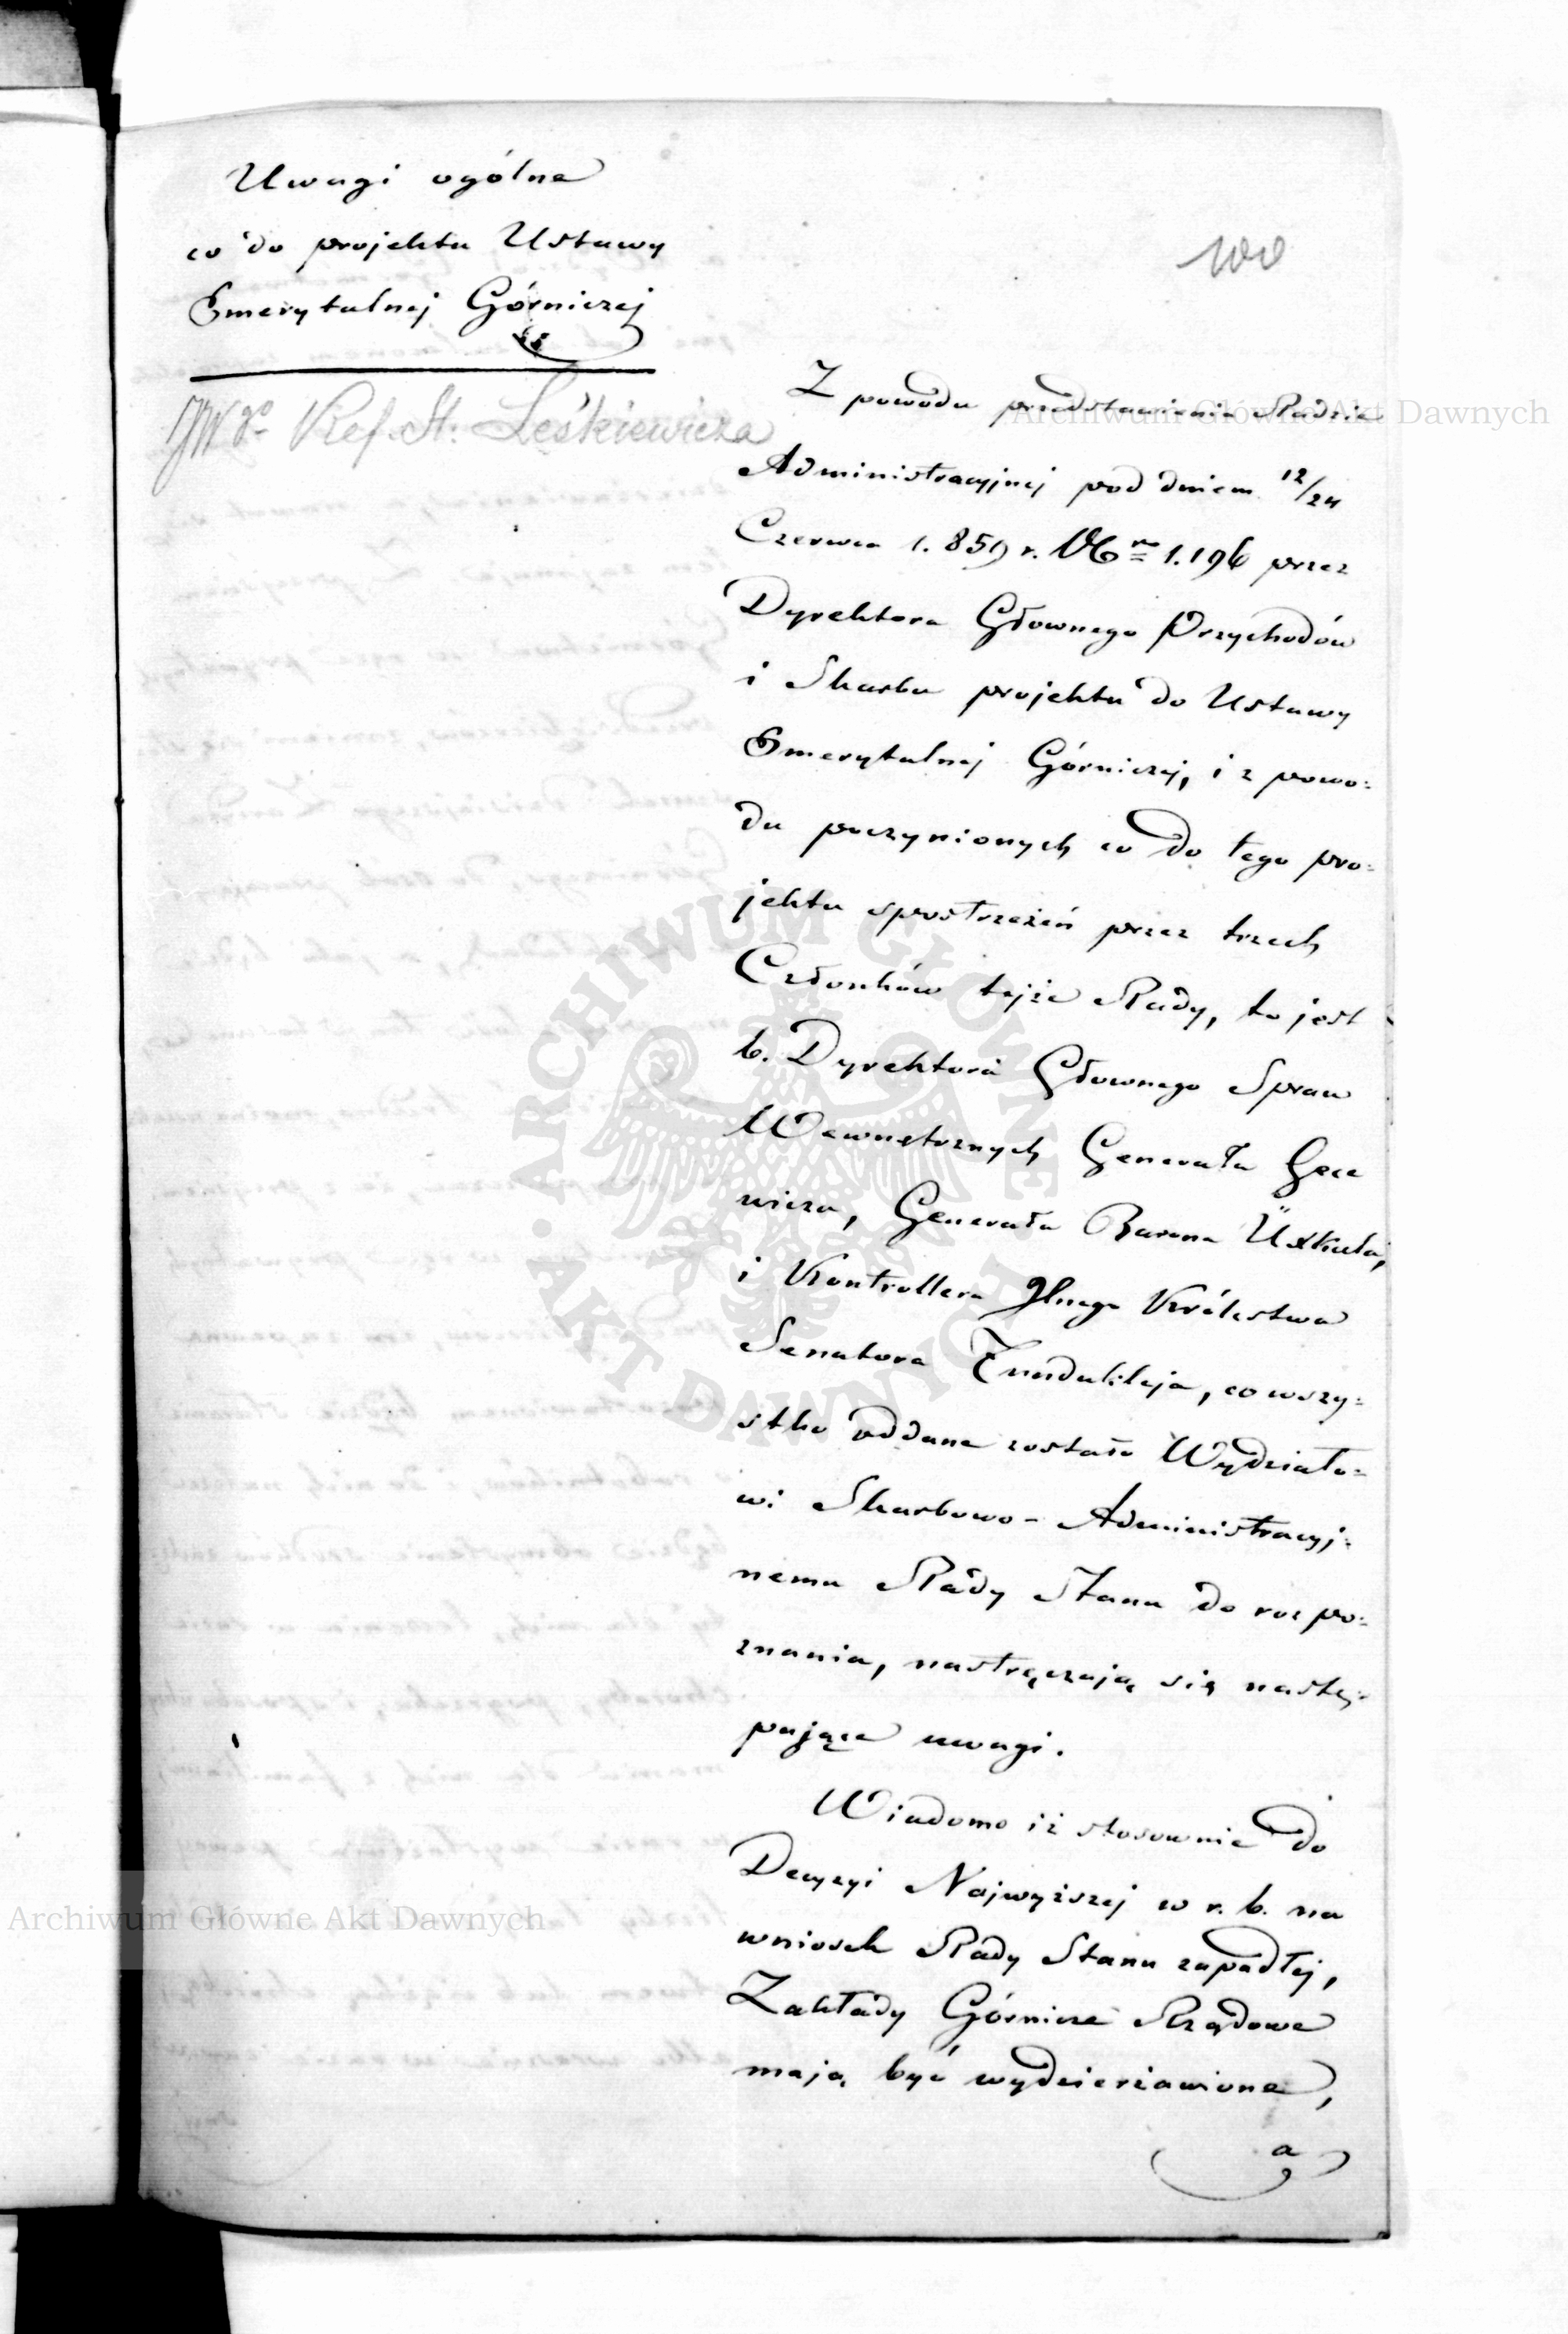 Uwagi ogólne
co do projektu Ustawy
Emerytalnej Górniczej
JW Ref. St. Leśkiewicza
100
Z powodu przedstawienia Radzie
Administracyjnej pod dniem 12/24
Czerwca 1.859 r. Nro 1.196 przez
Dyrektora Głownego Przychodów
i Skarbu projektu do Ustawy
Emerytalnej Górniczej, i z powo:
du poczynionych co do tego pro:
jektu spostrzeżeń przez trzech
Członków tejże Rady, to jest
b. Dyrektora Głownego Spraw
Wewnętrznych Generała Gece
wicza, Generała Barona Üxkula,
i Kontrollera Głnego Królestwa
Senatora Funduklieja, co wszy:
stko oddane zostało Wydziało:
wi Skarbowo-Administracyj:
nemu Rady Stanu do rozpo:
znania, nastręczają się nastę:
pujące uwagi.
Wiadomo iż stosownie do
Decyzyi Najwyższej w r. b. na
wniosek Rady Stanu zapadłej,
Zakłady Górnicze Rządowe
mają być wydzierżawione,
a
Archiwum Główne Akt Dawnych
Archiwum Główne Akt Dawnych
ARCHIWUM GŁÓWNE
AKT DAWNYCH